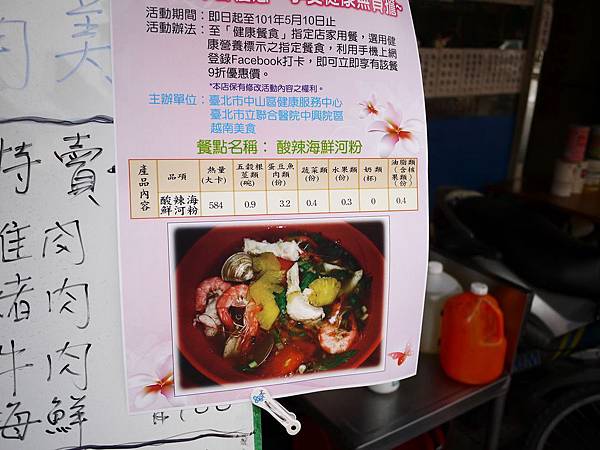 活動期間：即日起至101年5月10日止
活動辦法：至「健康餐食」指定店家用餐，選用健
康營養標示之指定餐食，利用手機上網
登錄Facebook打卡，即可立即享有該餐
9折優惠價。
*本店保有修改活動內容之權利。
主辦單位：臺北市中山區健康服務中心
臺北市立聯合醫院中興院區
越南美食
餐點名稱： 酸辣海鮮河粉
產品內容
品項 熱量(大卡) 五穀根莖類(碗) 蛋豆魚肉類(份) 蔬菜類(份) 水果類(份) 奶類(杯) 油脂類(含核果類)(份)
酸辣海鮮河粉 584 0.9 3.2 0.4 0.3 0 0.4
美
特賣
雞肉
豬肉
牛肉
海鮮